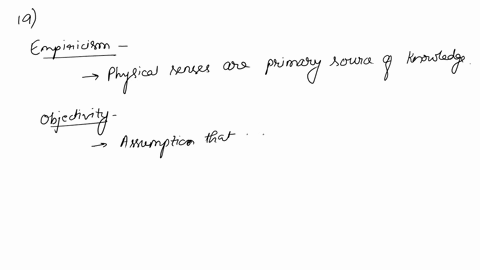 19)
Empiricism -
→ Physical senses are primary source of knowledge.
Objectivity -
→ Assumption that . .